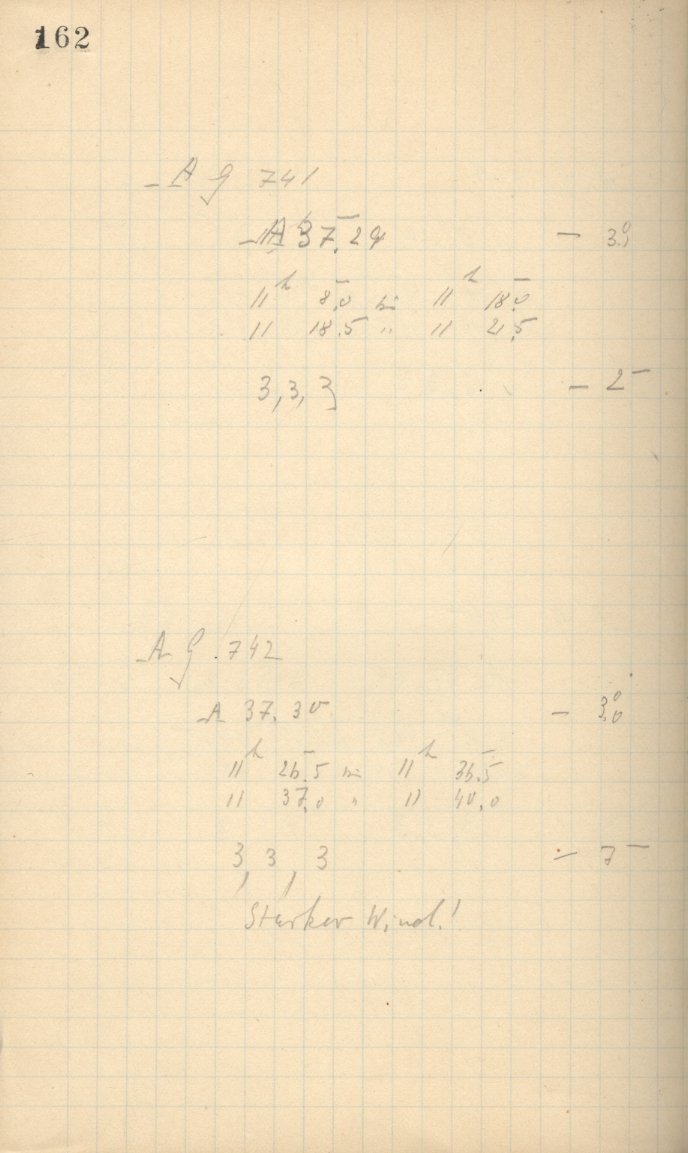 162
A G 741
A 37.29 — 3.°
11h 8.0 bis 11h 18.0
11 18.5 " 11 21.5
3, 3, 3 — 2–
A G 742
A 37.30 — 3.°0
11h 26.5 bis 11h 36.5
11 37.0 " 11 40.0
3, 3, 3 — 7–
Starker Wind!